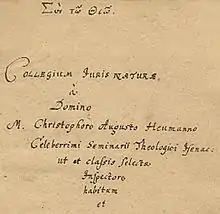 Σὺν τῷ Θεῷ.
COLLEGIUM JURIS NATURÆ,
à
Domino
M. Christophoro Augusto Heumanno
Celeberrimi Seminarii Theologici Isenac:
ut et classis selectæ
Inspectore
habitum
et